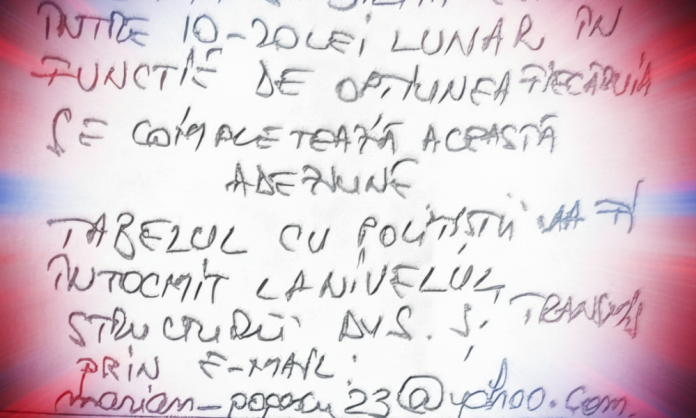 ÎNTRE 10-20 LEI LUNAR ÎN
FUNCTIE DE OPTIUNEA FIECĂRUIA
SE COMPLETEAZĂ ACEASTĂ
ADEZIUNE
TABELUL CU POLIȚIȘTII VA FI
ÎNTOCMIT LA NIVELUL
STRUCTURII DVS. ȘI TRANSMIS
PRIN E-MAIL:
marian_popescu23@yahoo.com